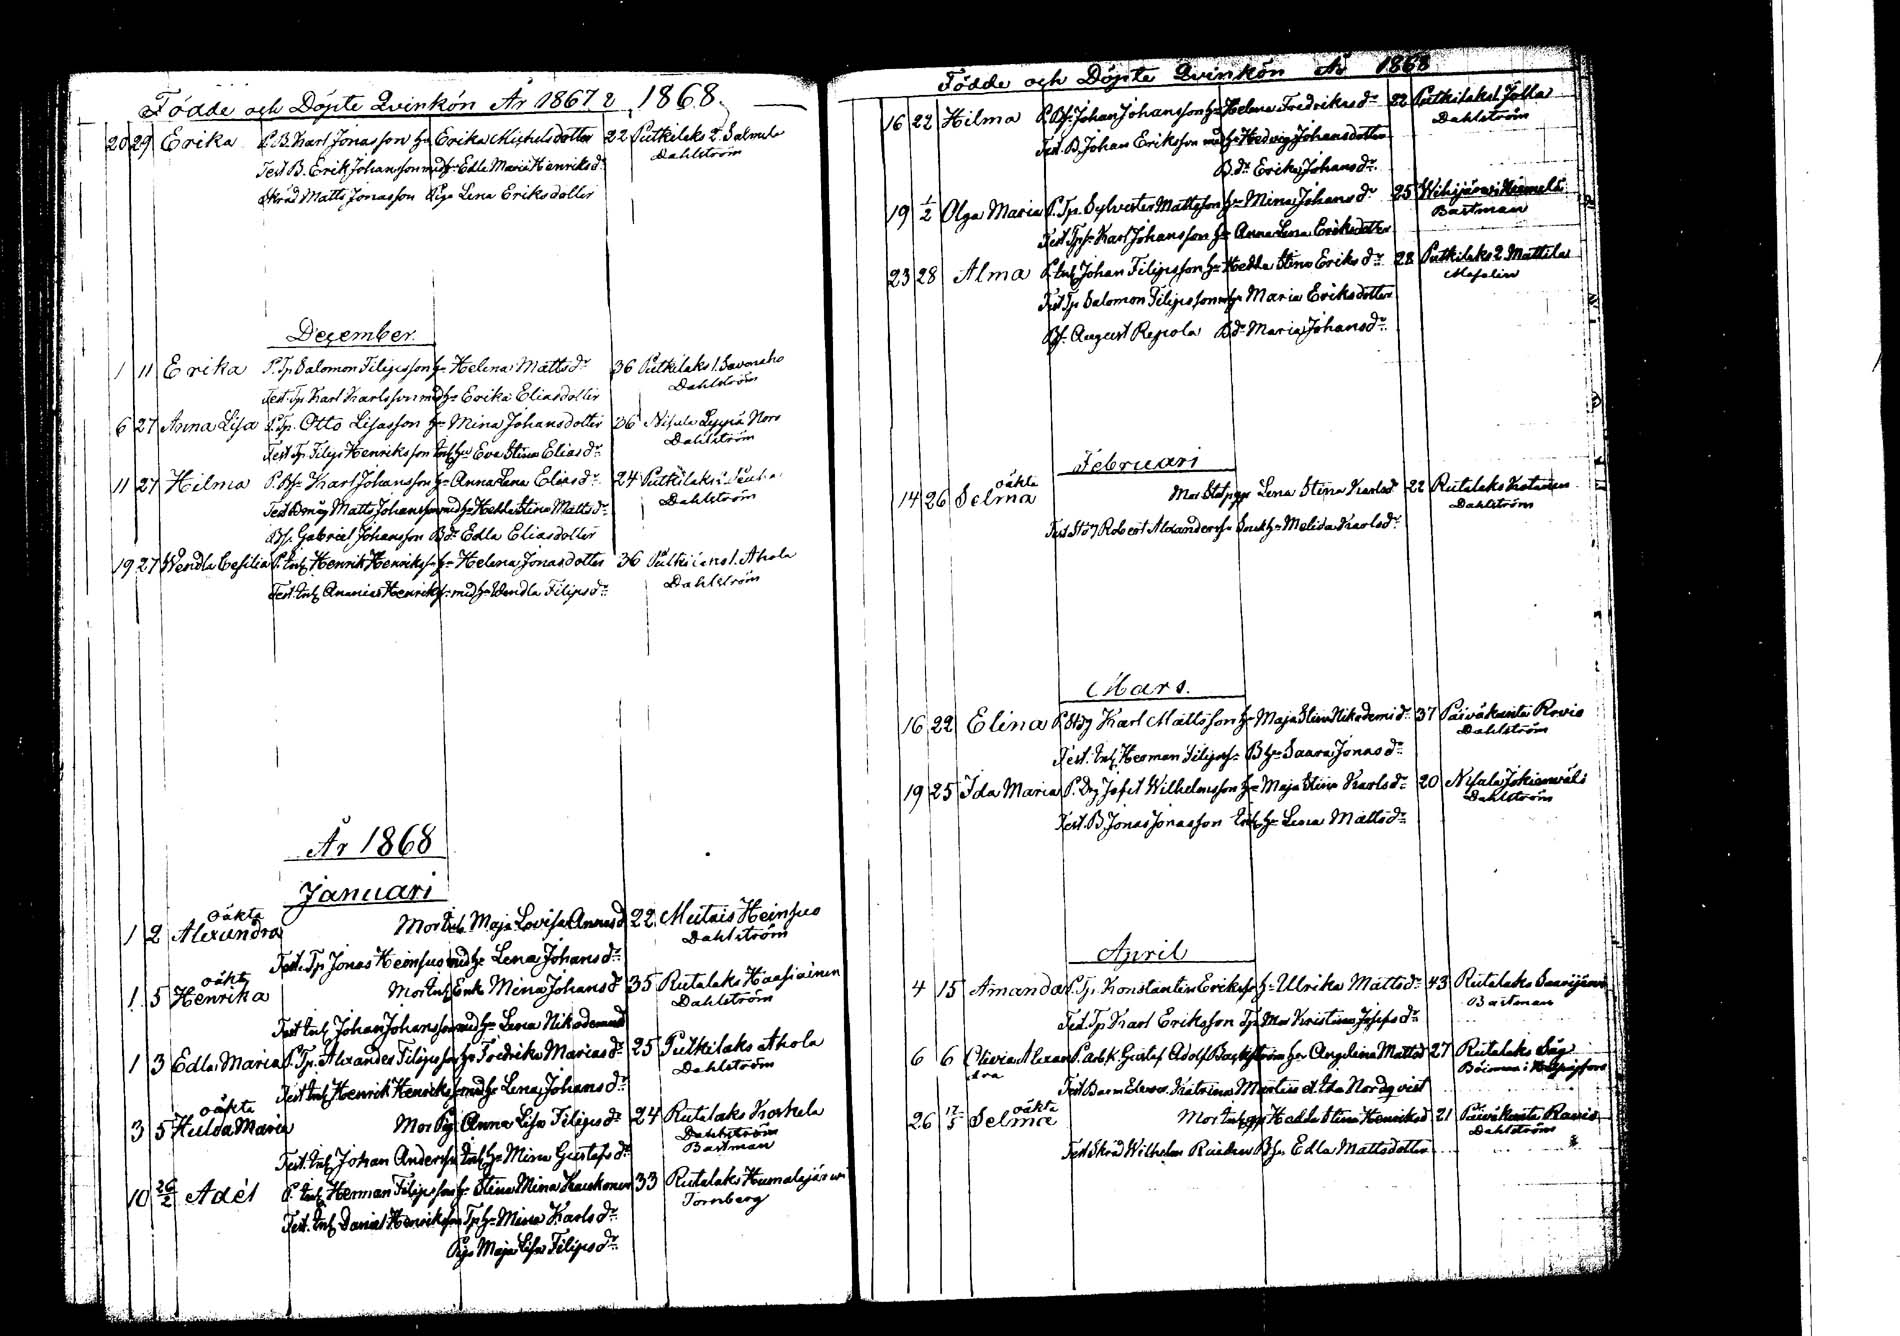 Födde och Döpte Qvinkön År 1867 & 1868.
20 29 Erika P. B. Karl Jonasson h: Erika Michelsdotter 22 Putkilaks 2. Salmela
Dahlström
Test B. Erik Johansson med h: Edla Maria Henriksd:r
Skräd Matts Jonasson Pig. Lena Eriksdotter
December
1 11 Erika P. Tp. Salomon Filipsson h: Helena Mattsd:r 36 Putkilaks 1. Savonaho
Dahlström
Test. Tp. Karl Karlsson med h: Erika Eliasdotter
6 27 Anna Lisa P. Tp. Otto Lisasson h: Mina Johansdotter 36 Nisula Leppä Noro
Dahlström
Test Tp. Filip Henriksson Inh. h: Eva Stina Eliasd:r
11 27 Hilma P. Bs: Karl Johansson h: Anna Lena Eliasd:r 24 Putkilaks
Dahlström
Test Bmåg Matts Johansson med h: Hedda Stina Mattsd:r
Bs. Gabriel Johansson Bd:r Edla Eliasdotter
19 27 Wendla Cesilia P. Inh. Henrik Henrikss: h: Helena Jonasdotter 36 Putkilaks 1. Ahola
Dahlström
Test. Inh. Ananias Henrikss: med h: Wendla Filipsd:r
År 1868
Januari
1 2 oäkta Alexandra Mor Inh. Maja Lovisa Annasd 22 Muttais Heinsuo
Dahlström
Test. Tp Jonas Heinsuo med h: Lena Johansd:r
1 5 oäkta Henrika Mor Inh. Enk. Mina Johansd 35 Rutalaks Haasiainen
Dahlström
Test Inh. Johan Johansson med h: Lena Nikodemusd
1 3 Edla Maria P. Tp. Alexander Filipsson h: Fredrika Mariasd:r 25 Putkilaks Ahola
Dahlström
Test Inh. Henrik Henrikss: med h: Lena Johansd:r
3 5 oäkta Hulda Maria Mor Pig. Anna Lisa Filipsd:r 24 Rutalaks Koskela
Dahlström
Bastman
Test. Inh. Johan Anderss: Inh. h: Mina Gustafsd:r
10 26/2 Adél P. Inh. Herman Filipsson h: Stina Mina Kaukonen 33 Rutalaks Humalajärvi
Tornberg
Test. Inh. Daniel Henriksson Tp h: Mina Karlsd:r
Pig. Maja Lisa Filipsd:r
Födde och Döpte Qvinkön År 1868
16 22 Hilma P. Bs: Johan Johansson h: Helena Fredriksd:r 22 Putkilaks 1. Jolla
Dahlström
Test. B. Johan Eriksson med h: Hedvig Johansdotter
B.d:r Erika Johansd:r
19 1/2 Olga Maria P. Tp. Sylvester Mattsson h: Mina Johansd:r 25 Wihijärvi
Bastman
Test Tps: Karl Johansson h: Anna Lena Eriksdotter
23 28 Alma P. Inh. Johan Filipsson h: Hedda Stina Eriksd:r 28 Putkilaks 2 Mattila
Test Tp Salomon Filipsson m. h: Maria Eriksdotter
Bs: August Repola Bd:r Maria Johansd:r
Februari
14 26 oäkta Selma Mor Lena Stina Karlsd 22 Rutalaks
Dahlström
Test Robert Alexanderss: h: Melida Karlsd:r
Mars.
16 22 Elina P. Karl Mattsson h: Maja Stina Nikodemid:r 37 Päiväkunta Rovio
Dahlström
Test. Inh. Herman Filipss: B h: Saara Jonasd:r
19 25 Ida Maria P. Drg Josef Wilhelmsson h: Maja Stina Karlsd:r 20 Nisula Jokiowäli
Dahlström
Test. B. Jonas Jonasson Inh. h: Lena Mattsd:r
April
4 15 Amanda P. Tp. Konstantin Erikss: h: Ulrika Mattsd:r 43 Rutalaks Saarijärvi
Bastman
Test. Tp Karl Eriksson Tp. Mor Kristina Josefsd:r
6 6 Olivia Alexandra P. arb.k. Gustaf Adolf h: Angelina Mattsd 27 Rutalaks Såg
i Helsingfors
Test Barnm Katrina Martin et Ida Nordqvist
26 17/5 oäkta Selma Mor Inh. Hedda Stina Henriksd 21 Päiväkunta Rovio
Dahlström
Test Skräd Wilhelm Bs. Edla Mattsdotter